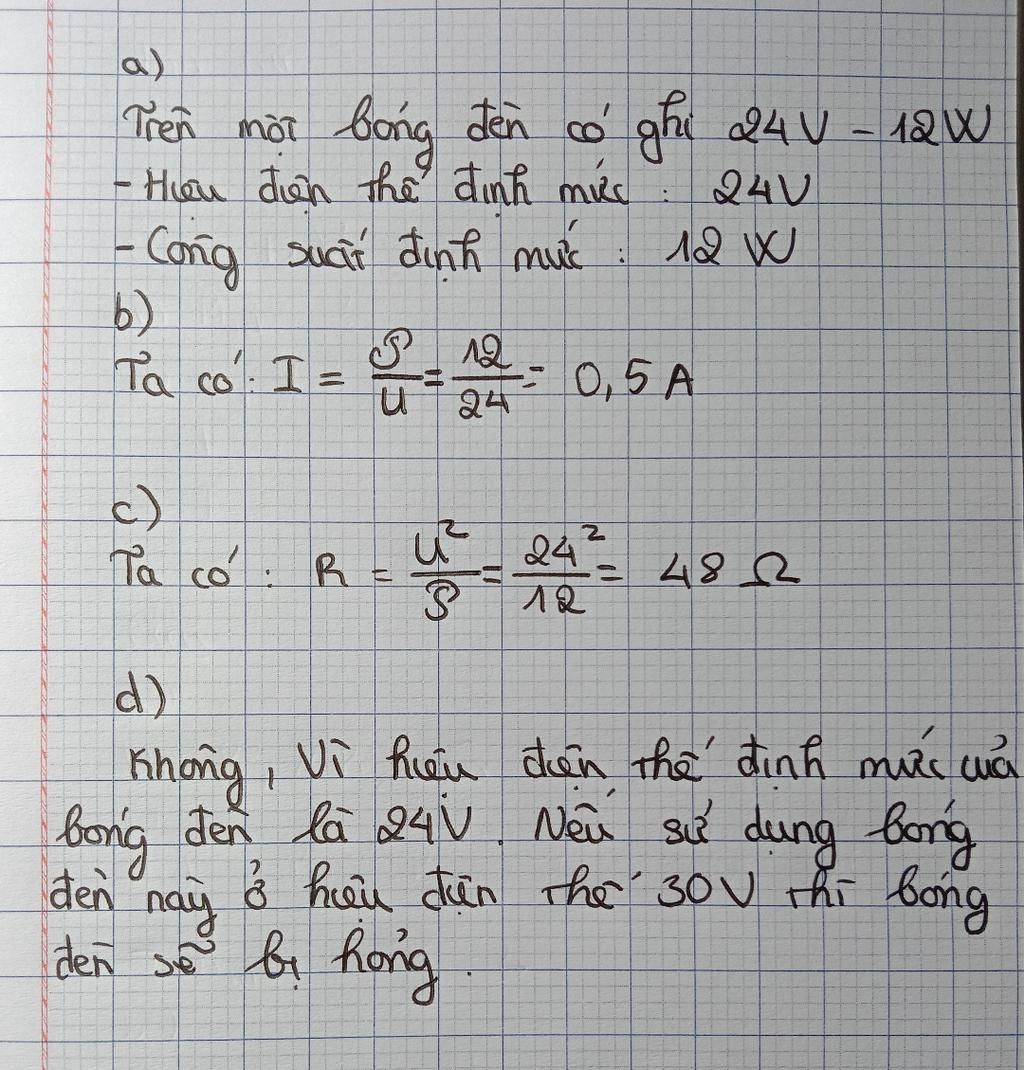 a)
Trên một bóng đèn có ghi 24V - 12W
- Hiệu điện thế định mức : 24V
- Công suất định mức : 12 W
b)
Ta có : I = 𝒫/U = 12/24 = 0,5 A
c)
Ta có : R = U²/𝒫 = 24²/12 = 48 Ω
d)
Không, Vì hiệu điện thế định mức của
bóng đèn là 24V. Nếu sử dụng bóng
đèn này ở hiệu điện thế 30V thì bóng
đèn sẽ bị hỏng.